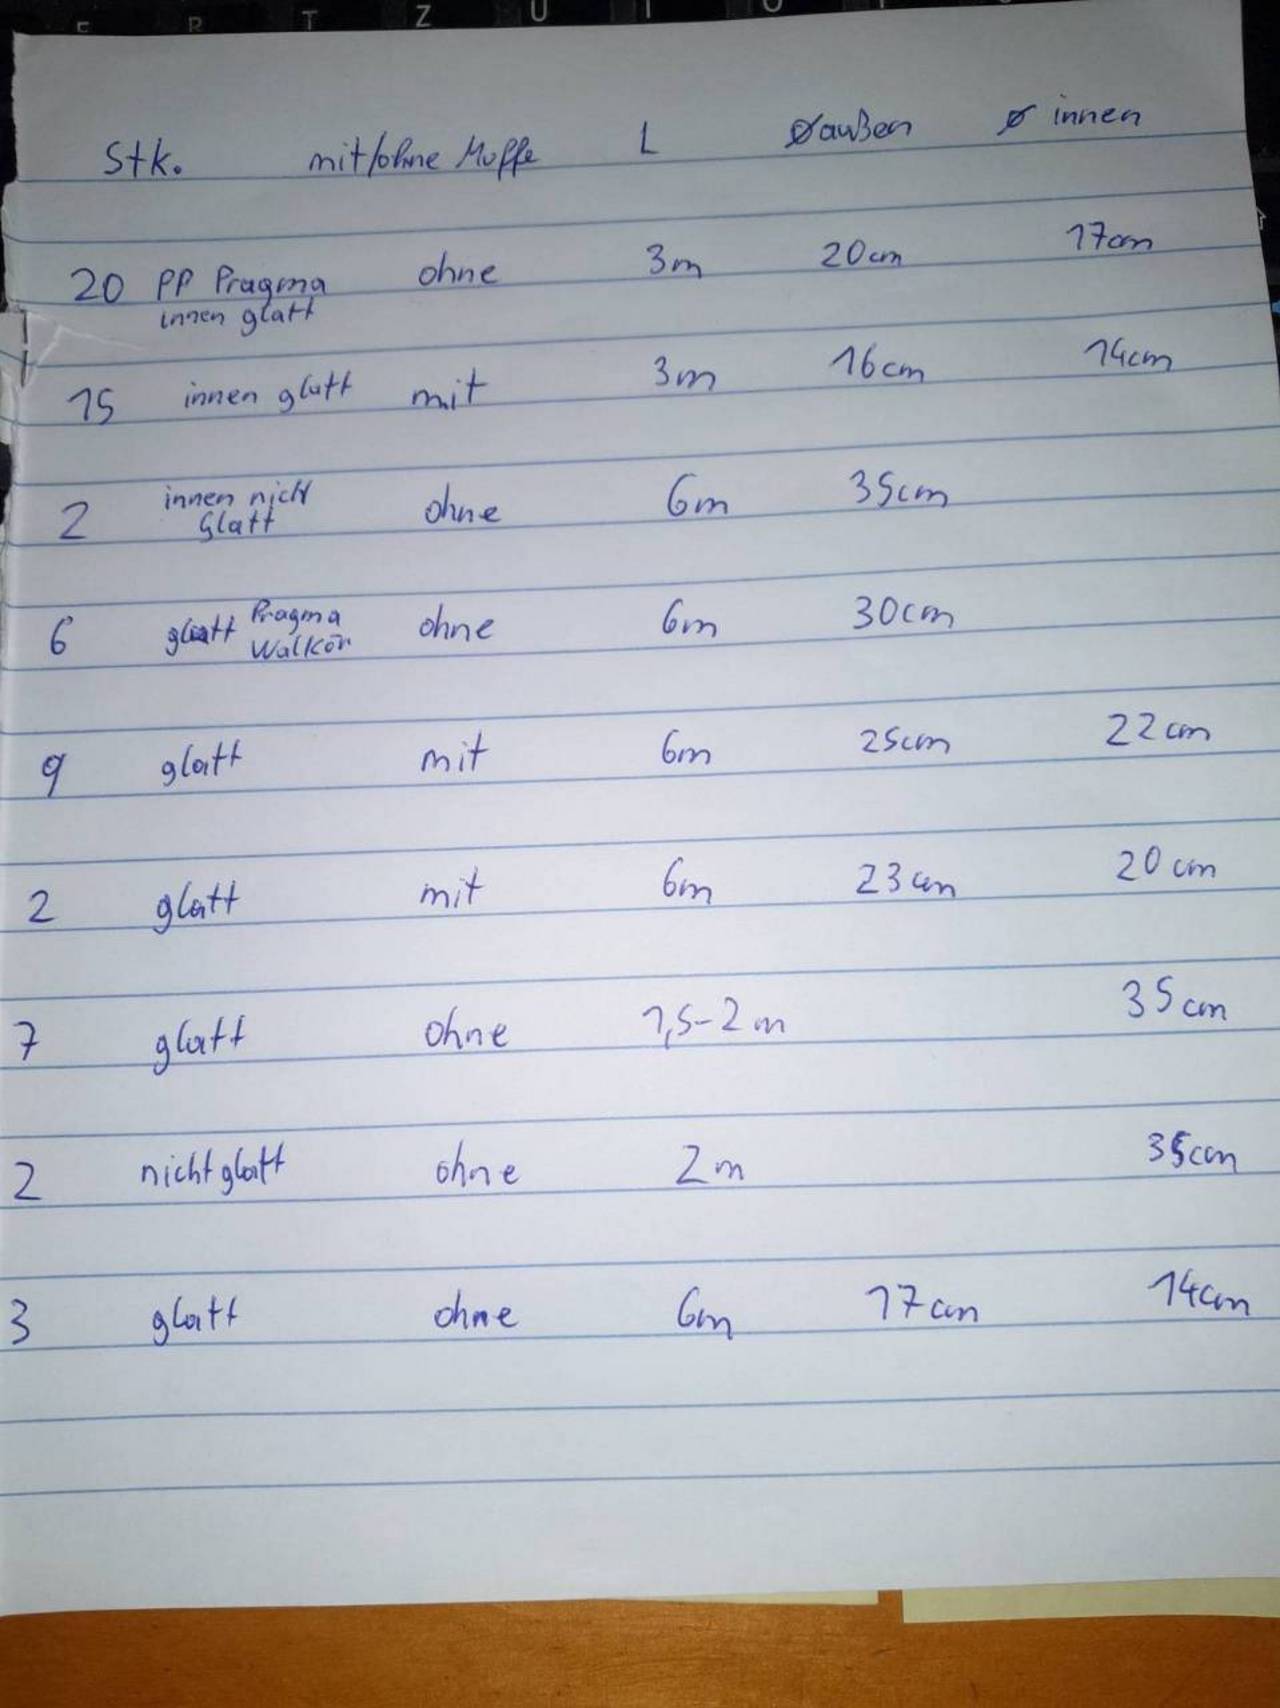 E R T Z U I O
Stk. mit/ohne Muffe L Ø außen Ø innen
20 PP Pragma ohne 3m 20cm 17cm
innen glatt
15 innen glatt mit 3m 16cm 14cm
2 innen nicht ohne 6m 35cm
Glatt
6 glatt Pragma ohne 6m 30cm
Walkör
9 glatt mit 6m 25cm 22cm
2 glatt mit 6m 23cm 20cm
7 glatt ohne 1,5-2m 35cm
2 nicht glatt ohne 2m 35cm
3 glatt ohne 6m 17cm 14cm